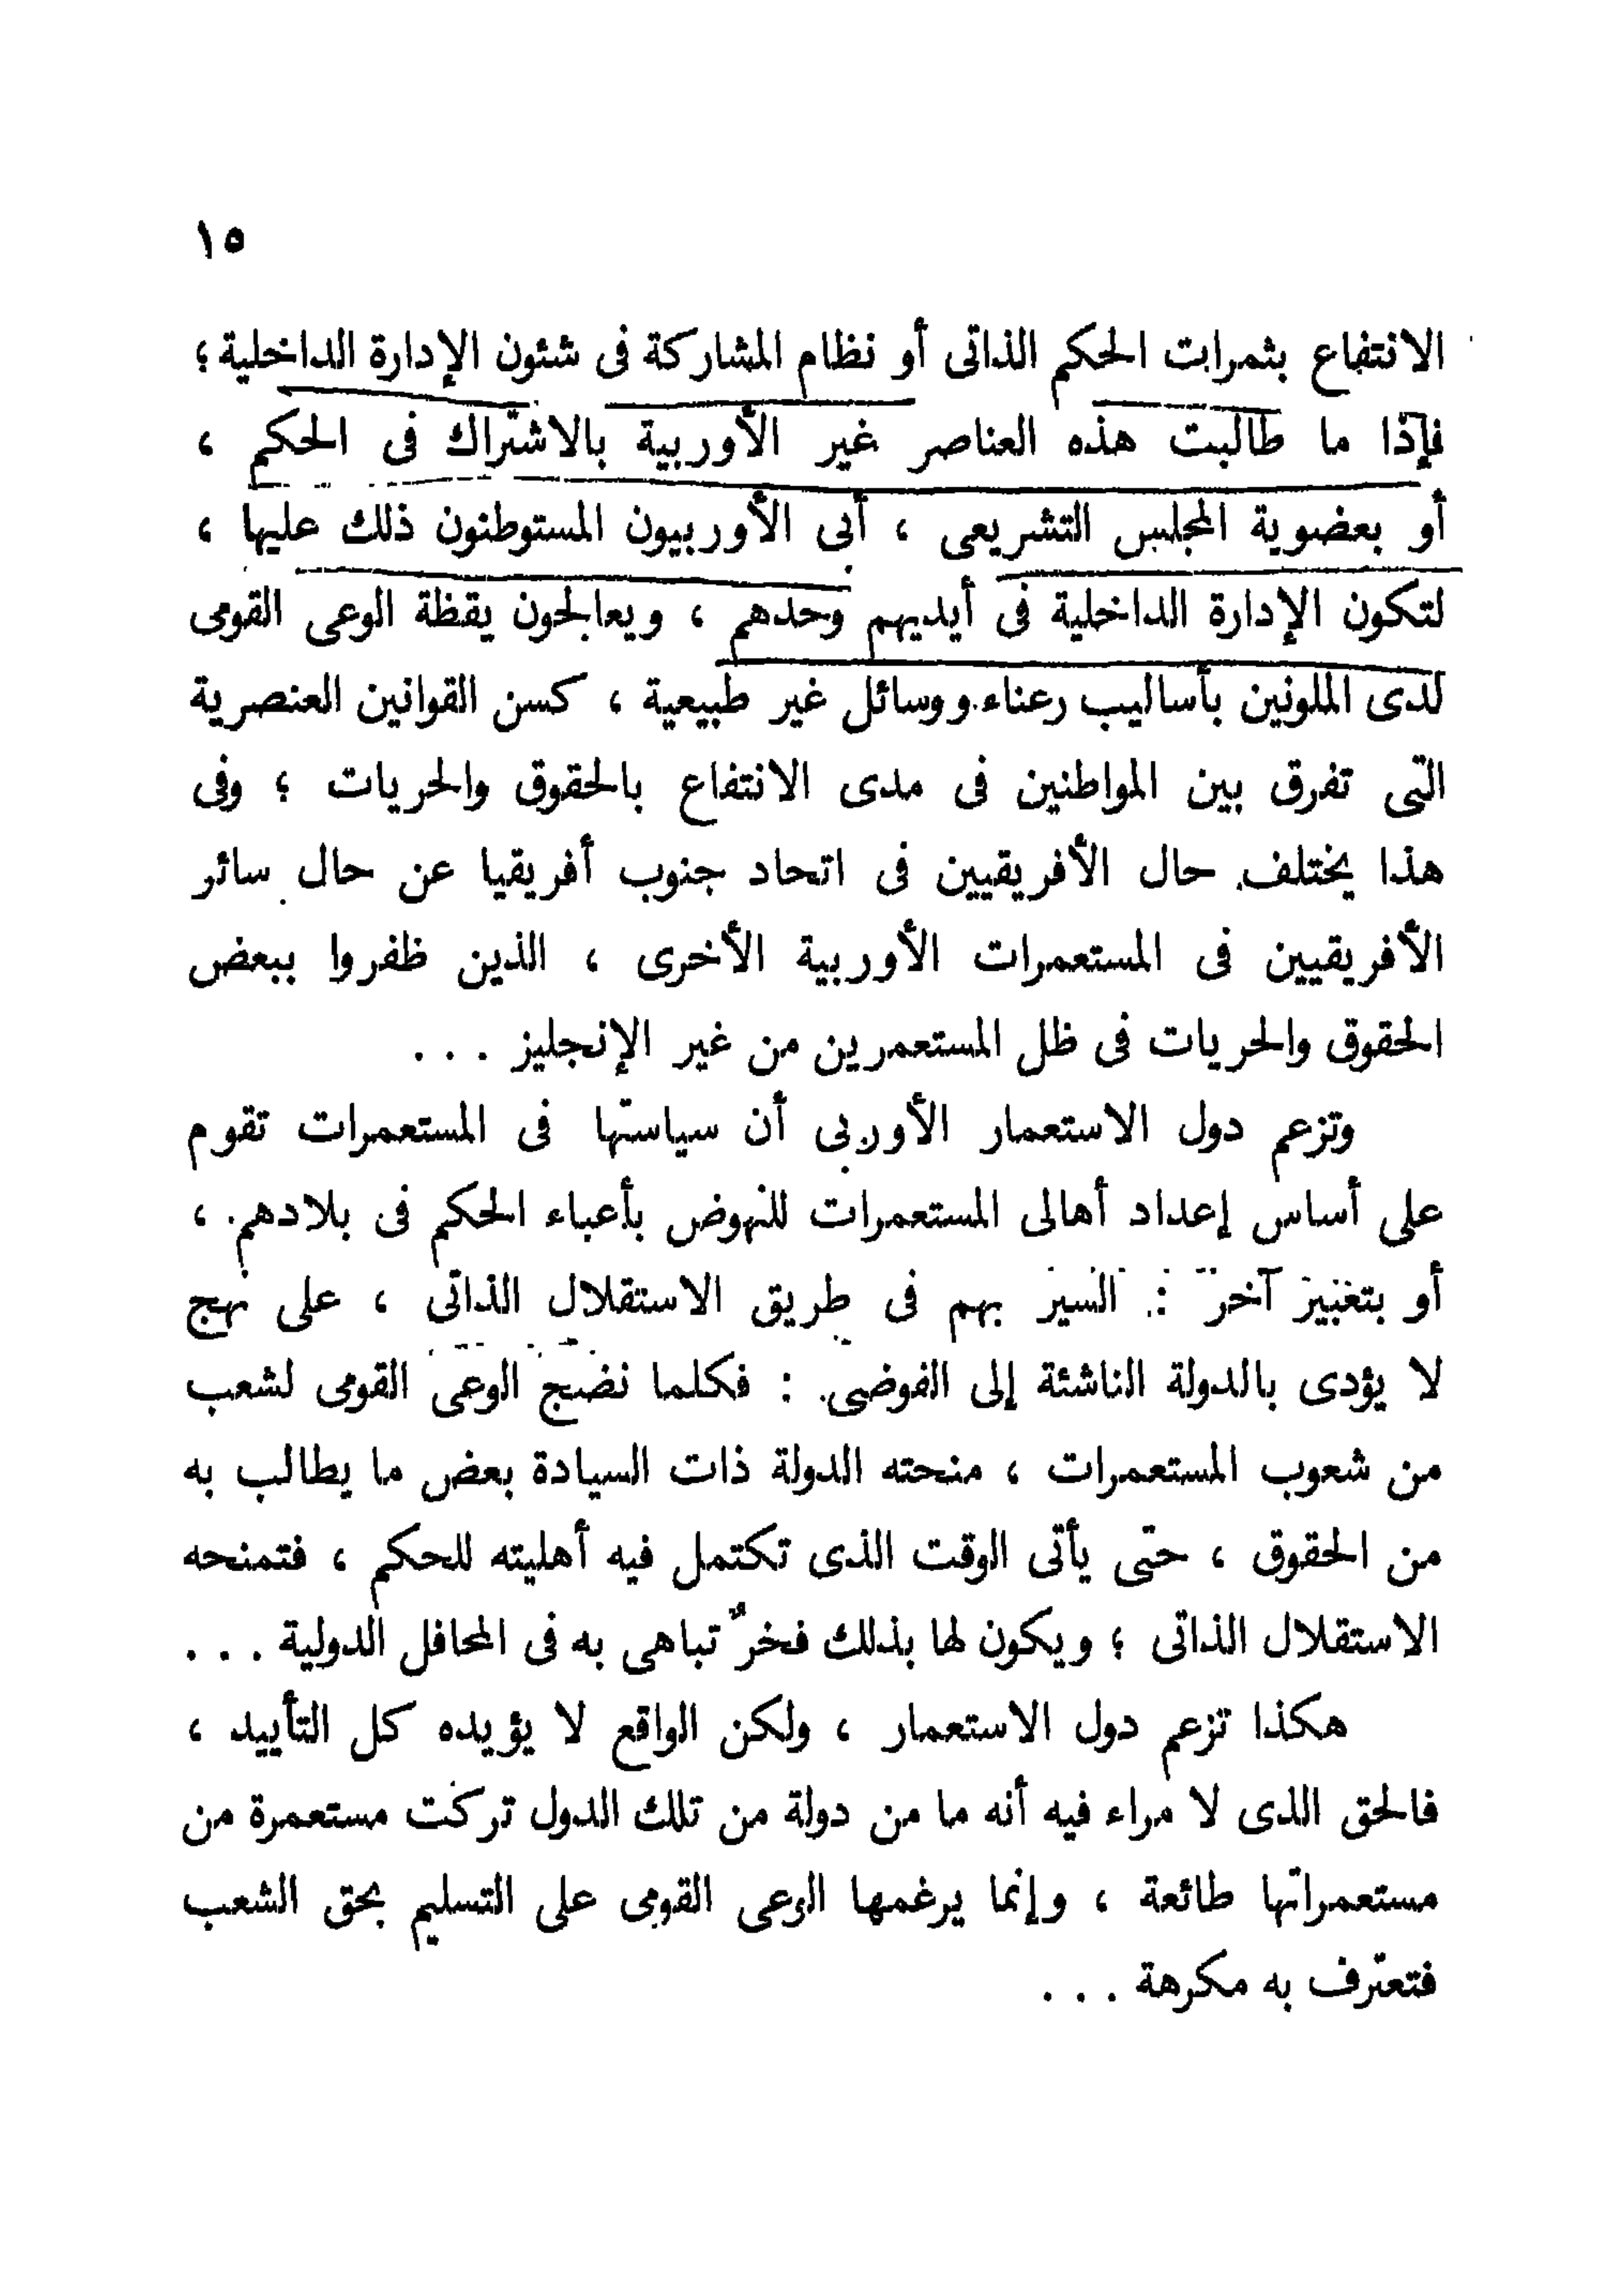 ١٥
الانتفاع بثمرات الحكم الذاتى أو نظام المشاركة فى شئون الإدارة الداخلية ؛
فإذا ما طالبت هذه العناصر غير الأوربية بالاشتراك فى الحكم ،
أو بعضوية المجلس التشريعى ، أبى الأوربيون المستوطنون ذلك عليها ،
لتكون الإدارة الداخلية فى أيديهم وحدهم ، ويعالجون يقظة الوعى القومى
لدى الملونين بأساليب رعناء ووسائل غير طبيعية ، كسن القوانين العنصرية
التى تفرق بين المواطنين فى مدى الانتفاع بالحقوق والحريات ؛ وفى
هذا يختلف حال الأفريقيين فى اتحاد جنوب أفريقيا عن حال سائر
الأفريقيين فى المستعمرات الأوربية الأخرى ، الذين ظفروا ببعض
الحقوق والحريات فى ظل المستعمرين من غير الإنجليز . . .
وتزعم دول الاستعمار الأوربى أن سياستها فى المستعمرات تقوم
على أساس إعداد أهالى المستعمرات للنهوض بأعباء الحكم فى بلادهم ،
أو بتعبير آخر : السير بهم فى طريق الاستقلال الذاتى ، على نهج
لا يؤدى بالدولة الناشئة إلى الفوضى : فكلما نضج الوعى القومى لشعب
من شعوب المستعمرات ، منحته الدولة ذات السيادة بعض ما يطالب به
من الحقوق ، حتى يأتى الوقت الذى تكتمل فيه أهليته للحكم ، فتمنحه
الاستقلال الذاتى ؛ ويكون لها بذلك فخرٌ تباهى به فى المحافل الدولية . . .
هكذا تزعم دول الاستعمار ، ولكن الواقع لا يؤيده كل التأييد ،
فالحق الذى لا مراء فيه أنه ما من دولة من تلك الدول تركت مستعمرة من
مستعمراتها طائعة ، وإنما يرغمها الوعى القومى على التسليم بحق الشعب
فتعترف به مكرهة . . .